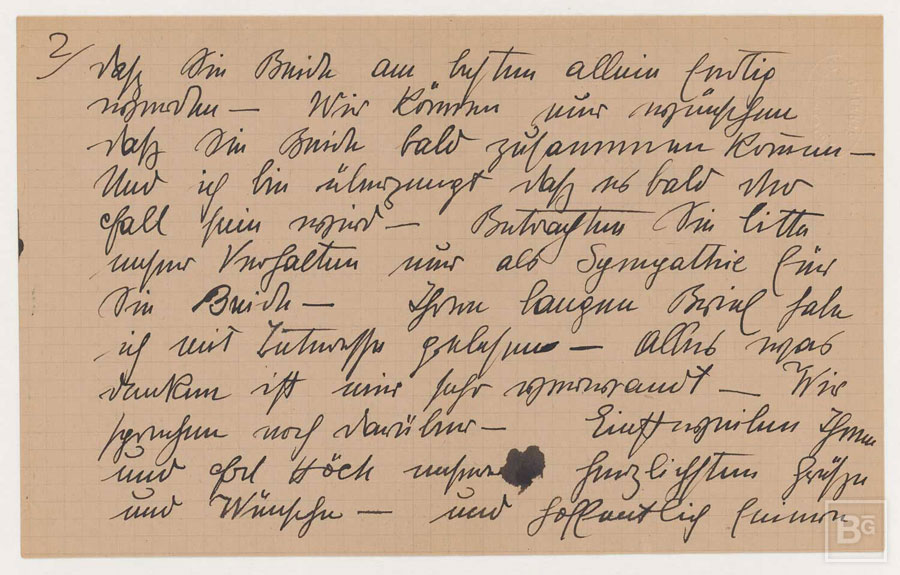 2/
daß Sie Beide am besten allein fertig
werden — Wir können nur wünschen
daß Sie Beide bald zusammen kommen —
Und ich bin überzeugt daß es bald der
Fall sein wird — Betrachten Sie bitte
unser Verhalten nur als Sympathie für
Sie Beide — Ihren langen Brief habe
ich mit Interesse gelesen — Alles was
denken ist mir sehr verwandt — Wir
sprechen noch darüber — Einstweilen Ihnen
und Frl Höch unsere herzlichsten Grüße
und Wünsche — und hoffentlich
BG